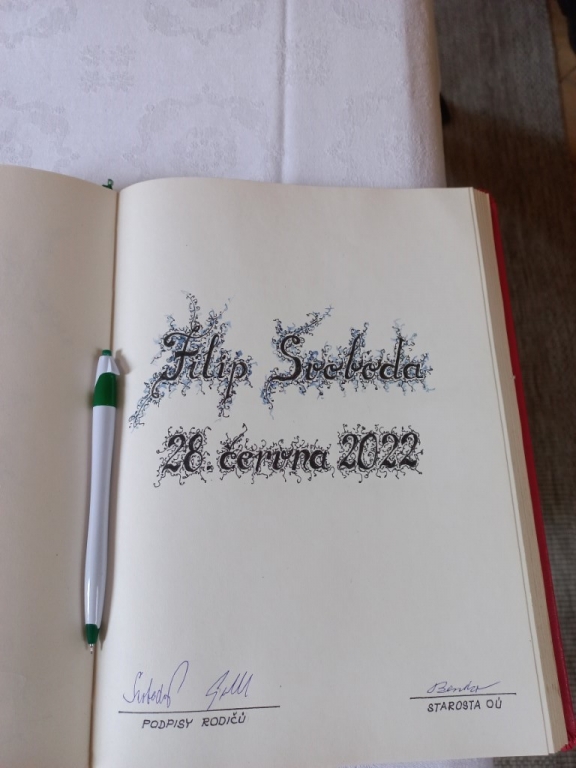 Filip Svoboda
28. června 2022
Svoboda
PODPISY RODIČŮ
STAROSTA OÚ